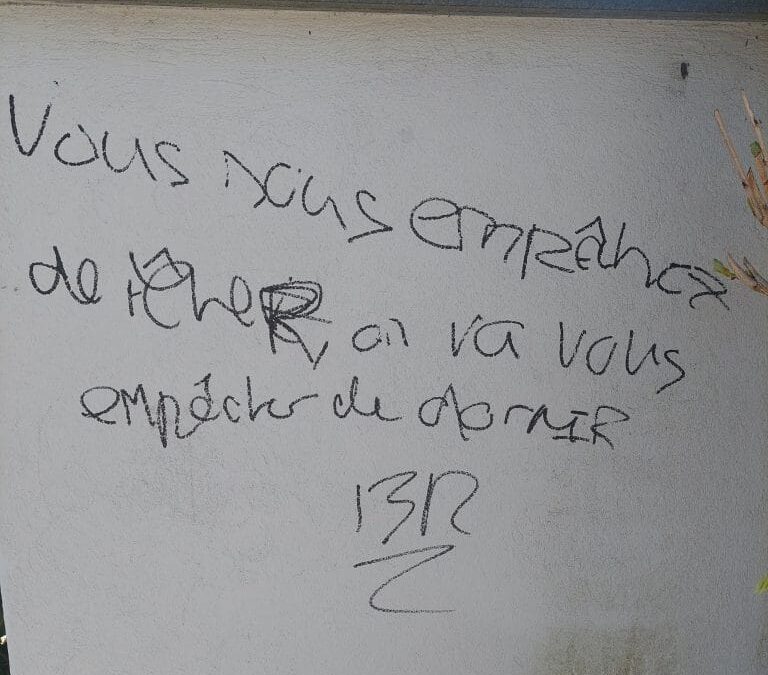 Vous nous empêhez
de rêheR, on va vous
empêcher de dormIR
BR
Z